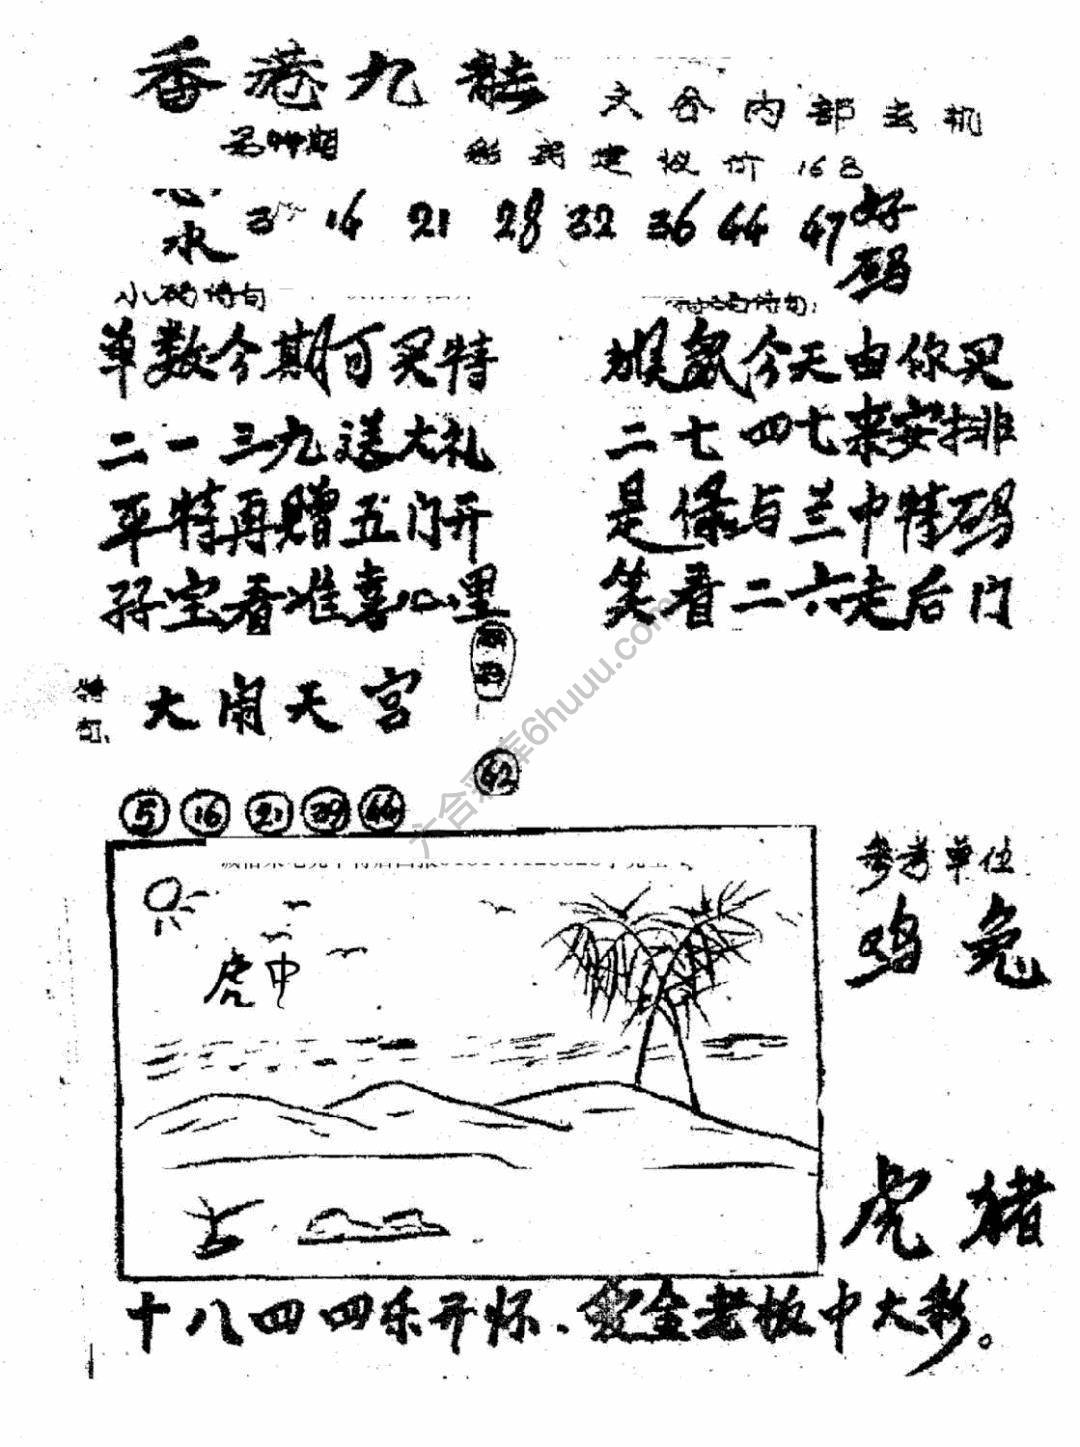 香港九龍
文谷内部玄机
第94期
彩民建议价168
心水 3 14 21 28 32 36 44 47 好码
小码诗句
单数今期可买特
二一三九送大礼
平特再赠五门开
孖宝看准喜心里
猴鼠今天由你买
二七四七来安排
是绿与兰中特码
笑看二六走后门
特诗句:
特ㄇ: 大闹天宫
42
5 16 21 39 44
参考单位
鸡兔
虎中
虎猪
十八四四乐开怀、发金老板中大彩。
六合彩库6huuu.com